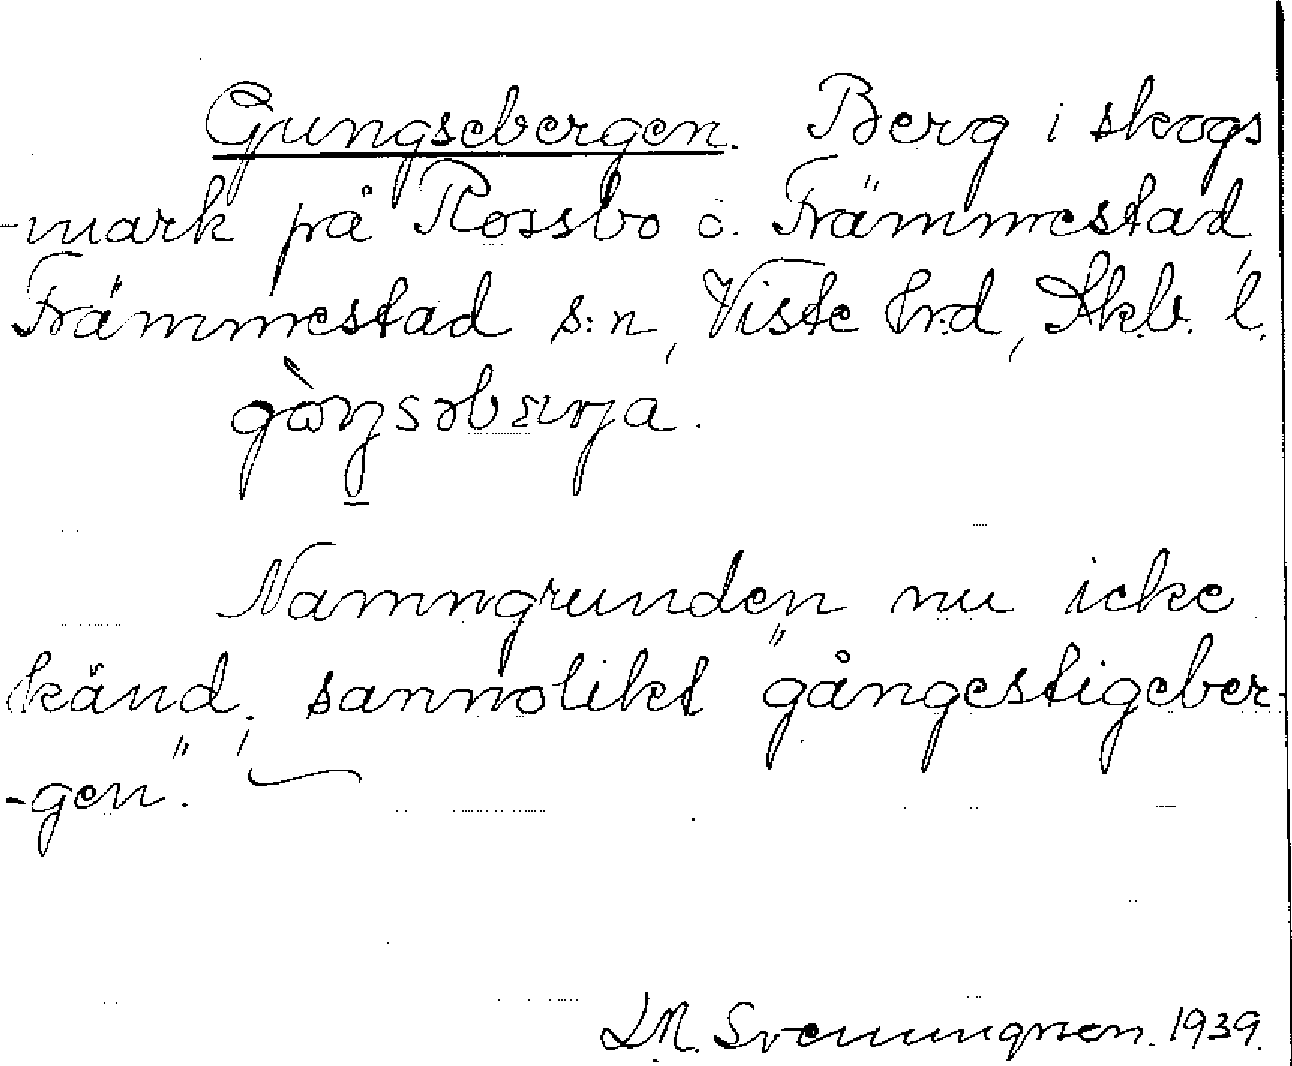 Gungsebergen. Berg i skogs
-mark på Rossbo o. Främmestad,
Främmestad s:n, Viste hrd, Skb. l.
gòŋsəbærja.
Namngrunden nu icke
känd, sannolikt "gångestigeber-
-gen".
L.M. Svenungsson. 1939.